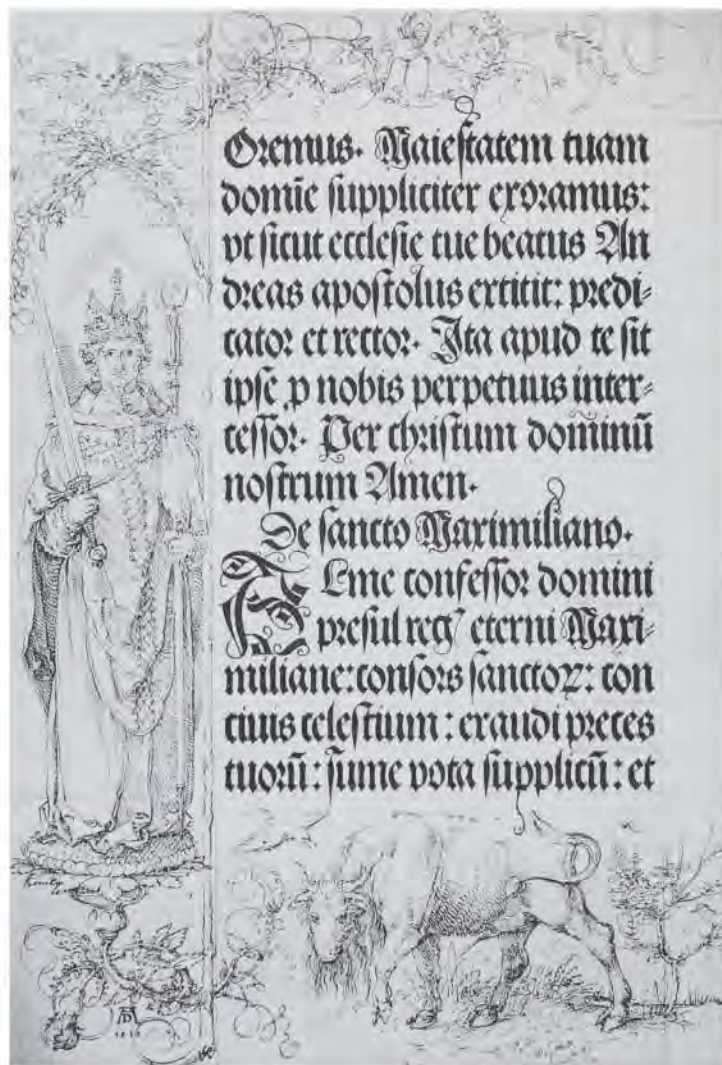 Oremus. Maieſtatem tuam
domīe ſuppliciter exoramus:
vt ſicut eccleſie tue beatus An
dreas apoſtolus extitit: predi⸗
cator et rector. Ita apud te ſit
ipſe ꝑ nobis perpetuus inter⸗
ceſſor. Per chriſtum dominū
noſtrum Amen.
De ſancto Maximiliano.
ALme confeſſor domini
preſul reg᾽ eterni Maxi⸗
miliane: conſors ſanctoꝝ: con
ciuis celeſtium: exaudi preces
tuorū: ſume vota ſupplicū: et
AD